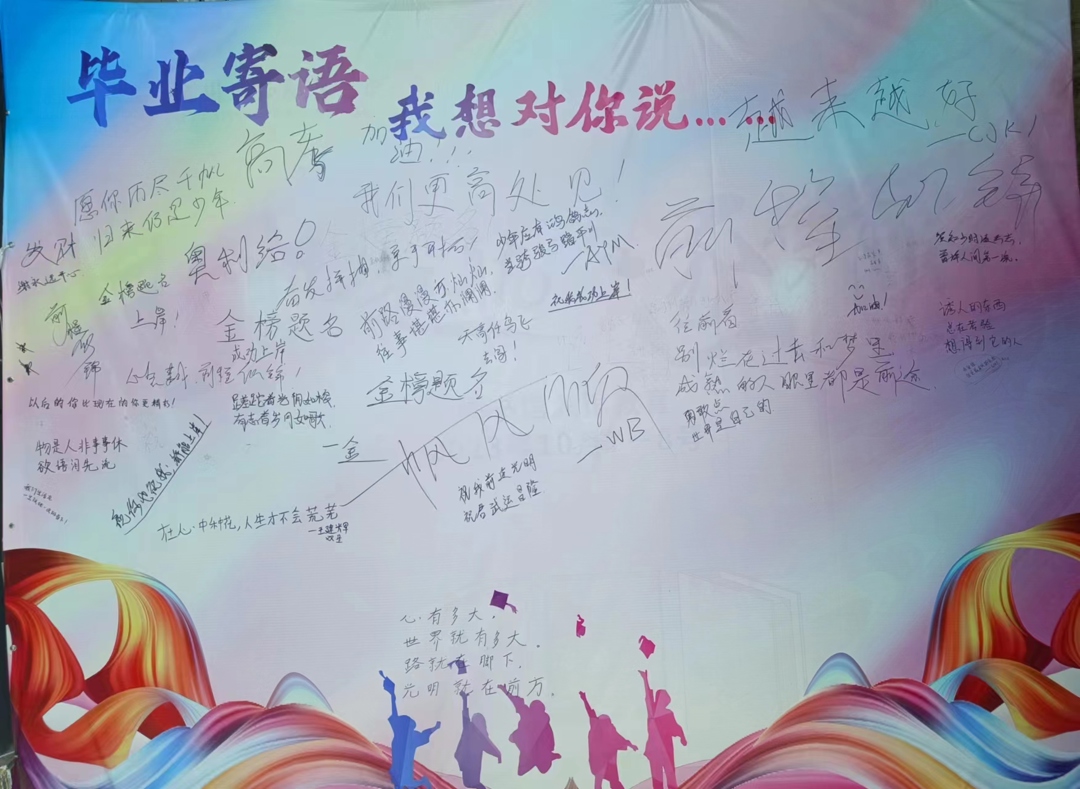 毕业寄语
我想对你说......
越来越好
—CJK!
高考
加油!!!
愿你历尽千帆
归来仍是少年.
我们更高处见!
前程似锦
发财
奥利给!
金榜题名
上岸!
前程似锦
金榜题名
成功上岸
前路漫漫亦灿灿,
往事堪堪亦澜澜.
少年应有鸿鹄志,
当骑骏马踏平川
—APM
祝你成功上岸!
天高任鸟飞
去闯!
加油!
往前看
别烂在过去和梦里
成熟的人眼里都是前途.
勇敢点
世界是自己的
诱人的东西
总在考验
想得到它的人
心想事成 前程似锦!
以后的你比现在的你更精彩!
金榜题名
—金
帆风顺
—WB
物是人非事事休
欲语泪先流
祝我前途光明
祝君武运昌隆
在心中种花,人生才不会荒芜
心有多大,
世界就有多大.
路就在脚下,
光明就在前方.